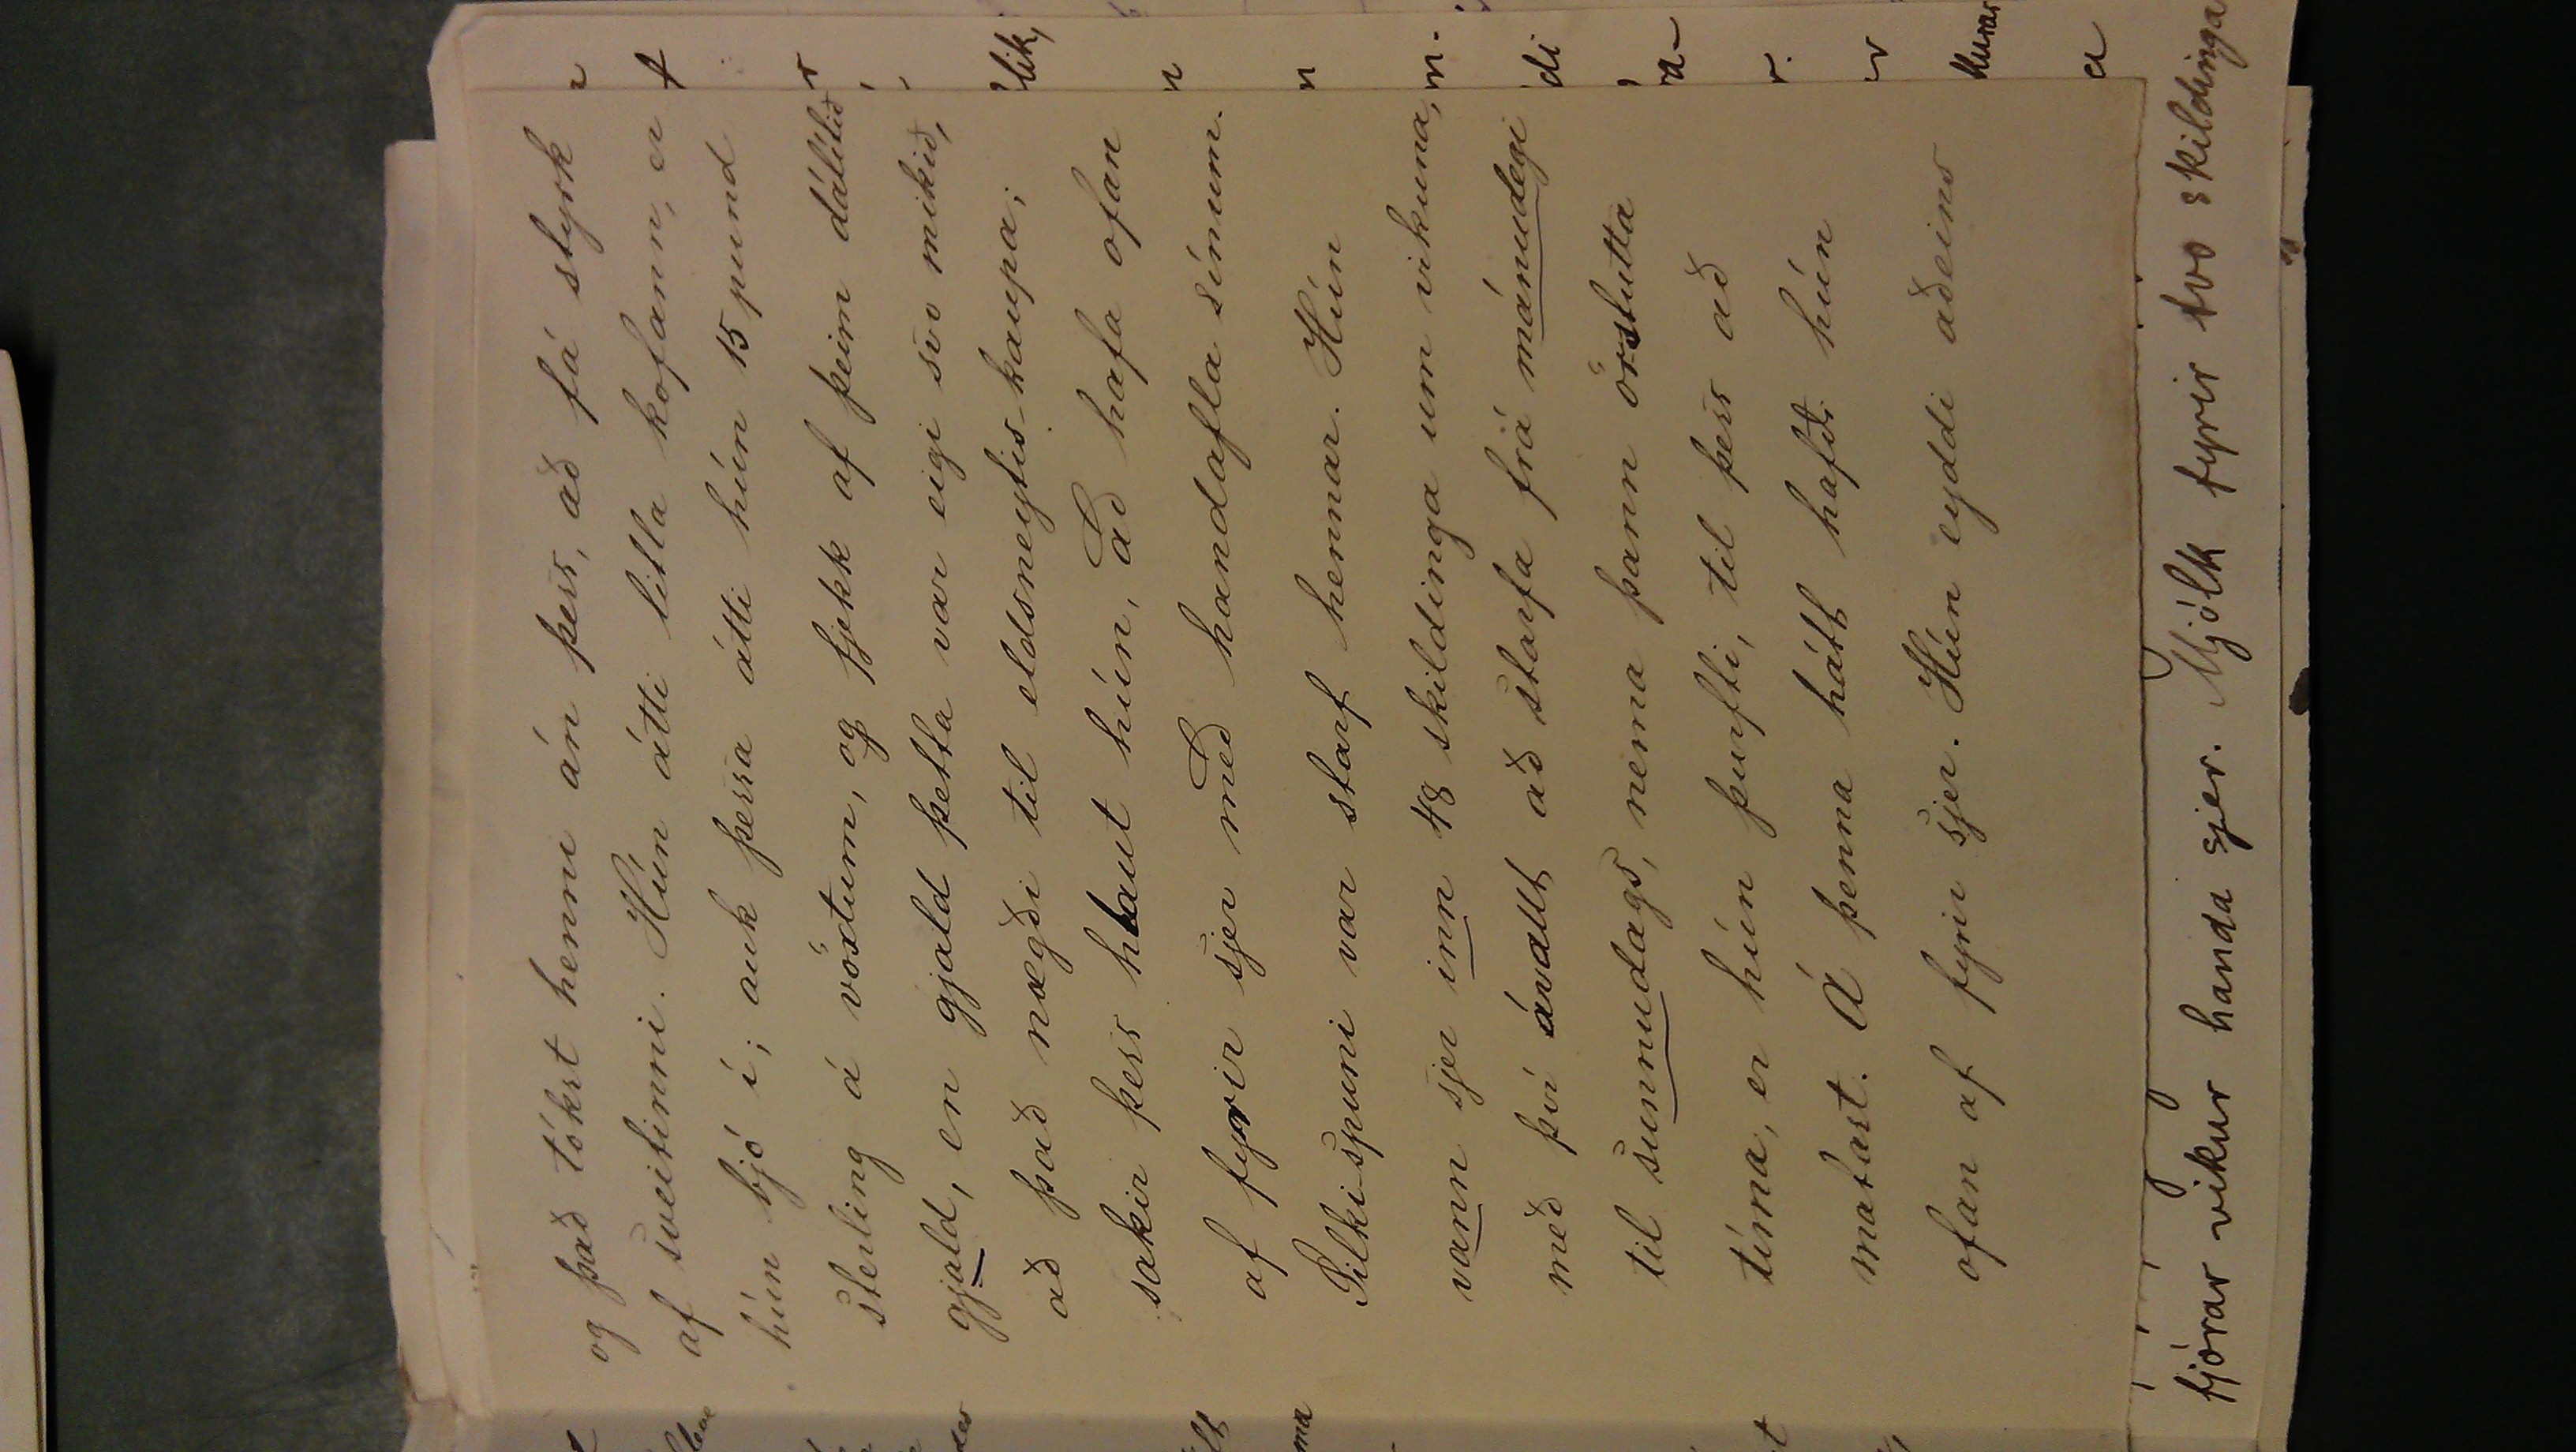 og það tókst henni án þess, að fá styrk
af sveitinni. Hún átti litla kofann, er
hún bjó í; auk þessa átti hún 15 pund
sterling á vöxtum, og fjekk af þeim dálítið
gjald, en gjald þetta var eigi svo mikið,
að það nægði til eldsneytis-kaupa;
sakir þess hlaut hún, að hafa ofan
af fyrir sjer með handafla sínum.
Pilki-spuni var starf hennar. Hún
vann sjer inn 48 skildinga um vikuna,
með því ávallt að starfa frá mánudegi
til sunnudags, nema þann örstutta
tíma, er hún þurfti, til þess að
matast. Á þenna hátt hafði hún
ofan af fyrir sjer. Hún eyddi aðeins
fjórar vikur handa sjer. Mjólk fyrir tvo skildinga